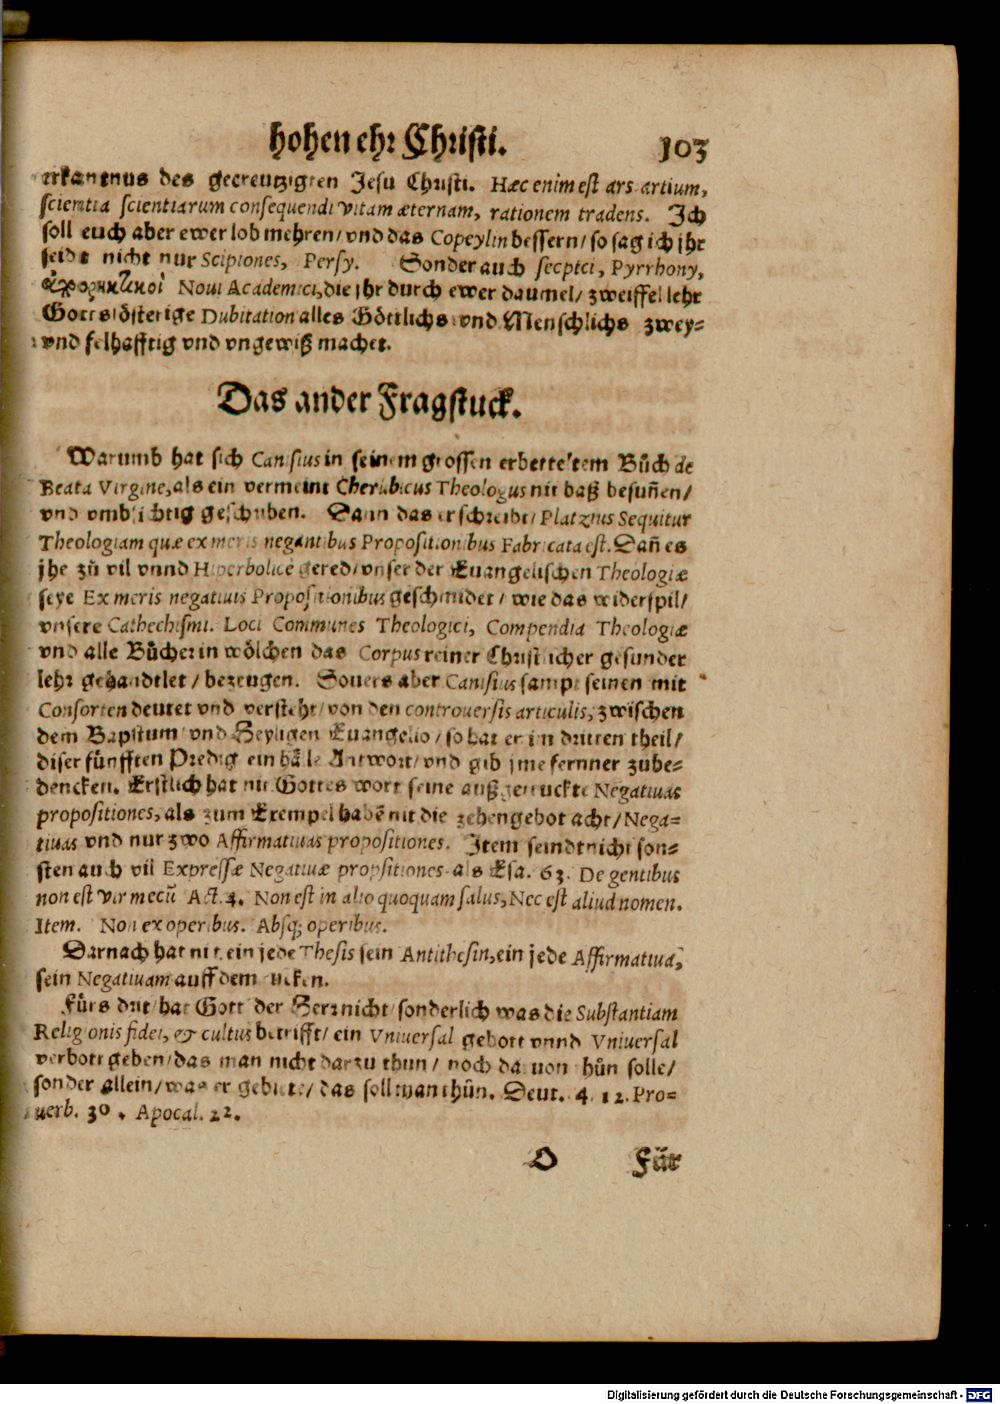 hohen ehr Christi. 103
erkantnus des gecreutzigten Jesu Christi. Hæc enim est ars artium,
scientia scientiarum consequendi vitam æternam, rationem tradens. Jch
soll euch aber ewer lob mehren/ vnd das Copeylin bessern/ so sag ich jhr
seidt nicht nur Scipiones, Persy. Sonder auch sceptci, Pyrrhony,
Noui Academici, die jhr durch ewer daumel/ zweiffel lehr
Gottslösterige Dubitation alles Göttlichs vnd Menschlichs zwey-
vnd felhafftig vnd vngewiß machet.
Das ander Fragstuck.
Warumb hat sich Canisius in seinem grossen erbettertem Bůch de
Beata Virgine, als ein vermeint Cherubicus Theologus nit baß besuñen/
vnd vmbsichtig geschriben. Dann das er schreibt/ Platzius Sequitur
Theologiam quæ ex meris negantibus Propositionibus Fabricata est. Dañ es
jhe zů vil vnnd Hiperbolicè gered/ vnser der Euangelischen Theologiæ
seye Ex meris negatiuis Propositionibus geschmidet/ wie das widerspil/
vnsere Cathechismi. Loci Communes Theologici, Compendia Theologiæ
vnd alle Bůcher in wölchen das Corpus reiner Christlicher gesunder
lehr gehandtlet/ bezeugen. Souers aber Canisius sampt seinen mit
Consorten deutet vnd versteht/ von den controuersis articulis, zwischen
dem Bapstum vnd Heyligen Euangelio/ so hat er in dritten theil/
diser fünfften Predig ein hälle Antwort/ vnd gib jme fernner zube-
dencken. Erstlich hat nit Gottes wort seine außgetruckte Negatiuas
propositiones, als zum Exempel habē nit die zehengebot acht/ Nega-
tiuas vnd nur zwo Affirmatiuas propositiones. Item seindt nicht son-
sten auch vil Expressæ Negatiuæ propsitiones als Esa. 63. De gentibus
non est vir mecū Act. 4. Non est in alio quoquam salus, Nec est aliud nomen.
Item. Non ex operibus. Absq; operibus.
Darnach hat nit ein jede Thesis sein Antithesin, ein jede Affirmatiua,
sein Negatiuam auff dem
Fürs drit/ hat Gott der Herr nicht/ sonderlich was die Substantiam
Religionis fidei, & cultus betrifft/ ein Vniuersal gebott vnnd Vniuersal
verbott geben/ das man nicht darzu thun/ noch dauon thůn solle/
sonder allein/ was er gebiete/ das soll man thůn. Deut. 4. 12. Pro-
uerb. 30. Apocal. 22.
O Für
Digitalisierung gefördert durch die Deutsche Forschungsgemeinschaft - DFG